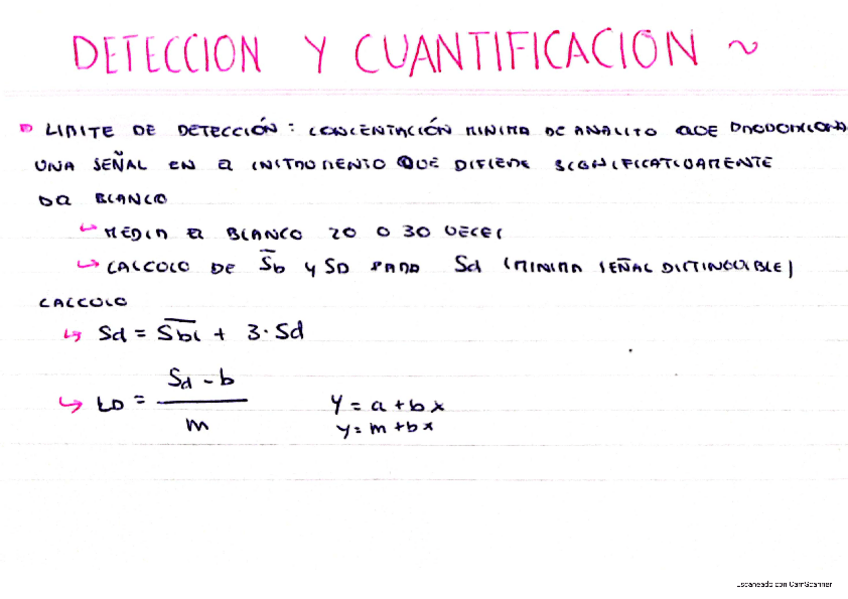 DETECCION Y CUANTIFICACION ~
LIMITE DE DETECCIÓN: CONCENTRACIÓN MINIMA DE ANALITO QUE PROPORCIONA
UNA SEÑAL EN EL INSTRUMENTO QUE DIFIERE SIGNIFICATIVAMENTE
DEL BLANCO
↪ MEDIR EL BLANCO 20 O 30 VECES
↪ CALCULO DE S̅b y SD PARA Sd (MINIMA SEÑAL DISTINGUIBLE)
CALCULO
↪ Sd = S̅bl + 3·Sd
↪ LD = (Sd - b) / m
Y = a + bx
y = m + bx
Escaneado con CamScanner